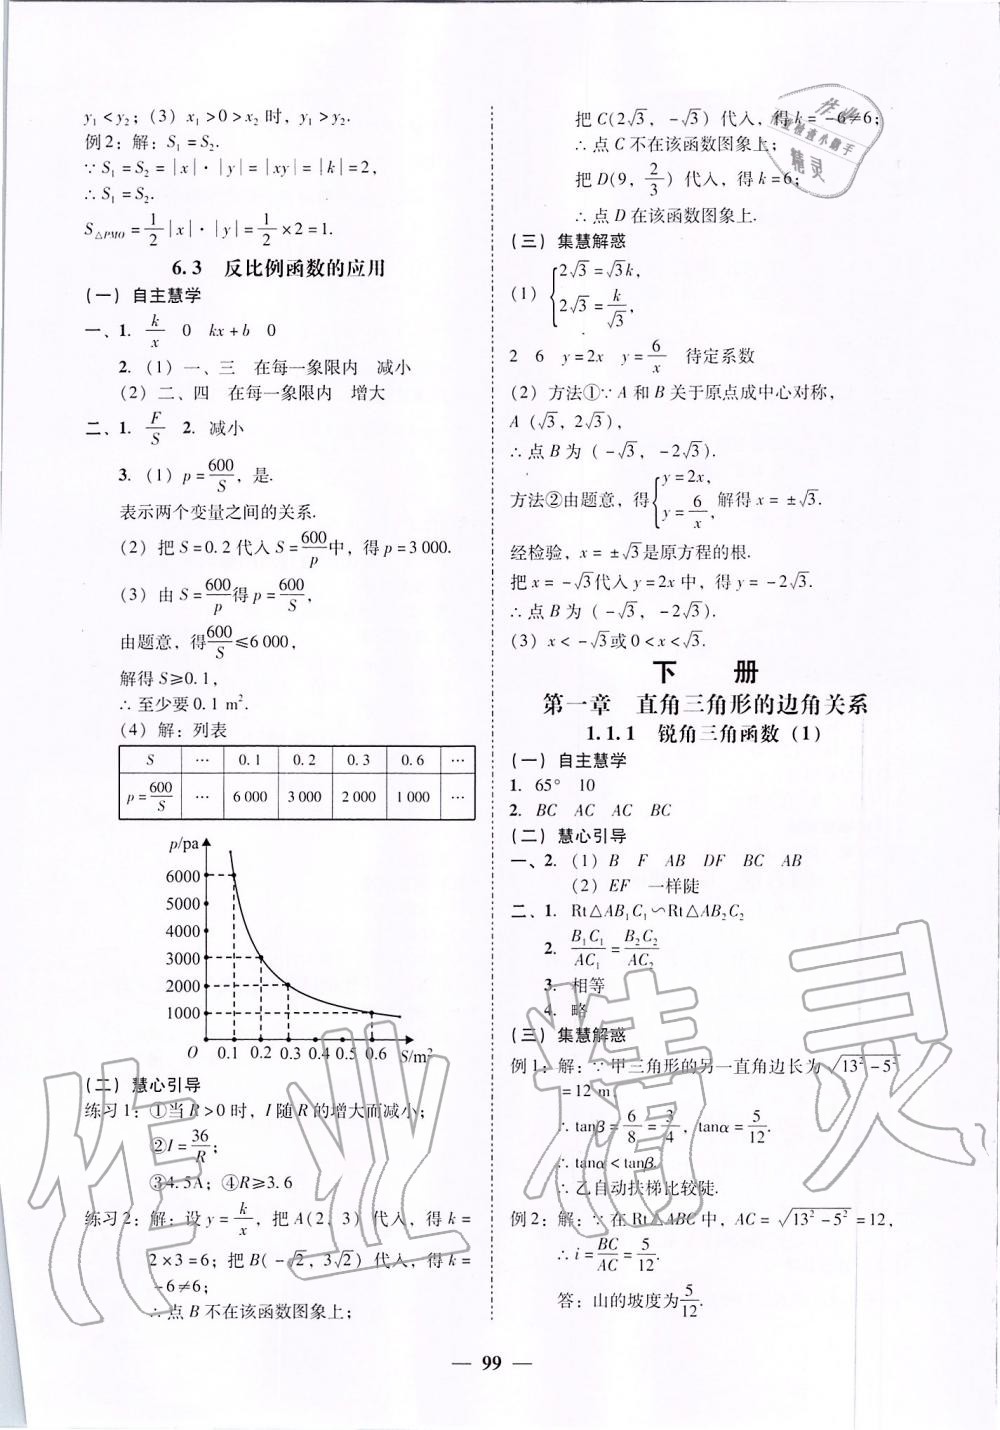 y₁<y₂；(3) x₁>0>x₂时，y₁>y₂.
例2：解：S₁=S₂.
∵S₁=S₂=|x|·|y|=|xy|=|k|=2，
∴S₁=S₂.
S△PMO=1/2|x|·|y|=1/2×2=1.
6.3 反比例函数的应用
(一) 自主慧学
一、1. k/x 0 kx+b 0
2. (1) 一、三 在每一象限内 减小
(2) 二、四 在每一象限内 增大
二、1. F/S 2. 减小
3. (1) p=600/S，是.
表示两个变量之间的关系.
(2) 把S=0.2代入S=600/p中，得p=3 000.
(3) 由S=600/p得p=600/S，
由题意，得600/S≤6 000，
解得S≥0.1，
∴至少要0.1 m².
(4) 解：列表
S … 0.1 0.2 0.3 0.6 …
p=600/S … 6 000 3 000 2 000 1 000 …
p/pa
6000
5000
4000
3000
2000
1000
O 0.1 0.2 0.3 0.4 0.5 0.6 S/m²
(二) 慧心引导
练习1：①当R>0时，I随R的增大而减小；
②I=36/R；
③4.5A；④R≥3.6
练习2：解：设y=k/x，把A(2，3) 代入，得k=
2×3=6；把B(-√2，3√2) 代入，得k=
-6≠6；
∴点B不在该函数图象上；
把C(2√3，-√3) 代入，得k=-6≠6；
∴点C不在该函数图象上；
把D(9，2/3) 代入，得k=6；
∴点D在该函数图象上.
(三) 集慧解惑
(1) {2√3=√3k，
2√3=k/√3，
2 6 y=2x y=6/x 待定系数
(2) 方法①∵A和B关于原点成中心对称，
A (√3，2√3)，
∴点B为 (-√3，-2√3).
方法②由题意，得{y=2x，y=6/x，解得x=±√3.
经检验，x=±√3是原方程的根.
把x=-√3代入y=2x中，得y=-2√3.
∴点B为 (-√3，-2√3).
(3) x<-√3或0<x<√3.
下 册
第一章 直角三角形的边角关系
1.1.1 锐角三角函数 (1)
(一) 自主慧学
1. 65° 10
2. BC AC AC BC
(二) 慧心引导
一、2. (1) B F AB DF BC AB
(2) EF 一样陡
二、1. Rt△AB₁C₁∽Rt△AB₂C₂
2. B₁C₁/AC₁=B₂C₂/AC₂
3. 相等
4. 略
(三) 集慧解惑
例1：解：∵甲三角形的另一直角边长为√(13²-5²)
=12 m
∴tanβ=6/8=3/4，tanα=5/12.
∴tanα<tanβ.
∴乙自动扶梯比较陡.
例2：解：∵在Rt△ABC中，AC=√(13²-5²)=12，
∴i=BC/AC=5/12.
答：山的坡度为5/12.
— 99 —
作业精灵